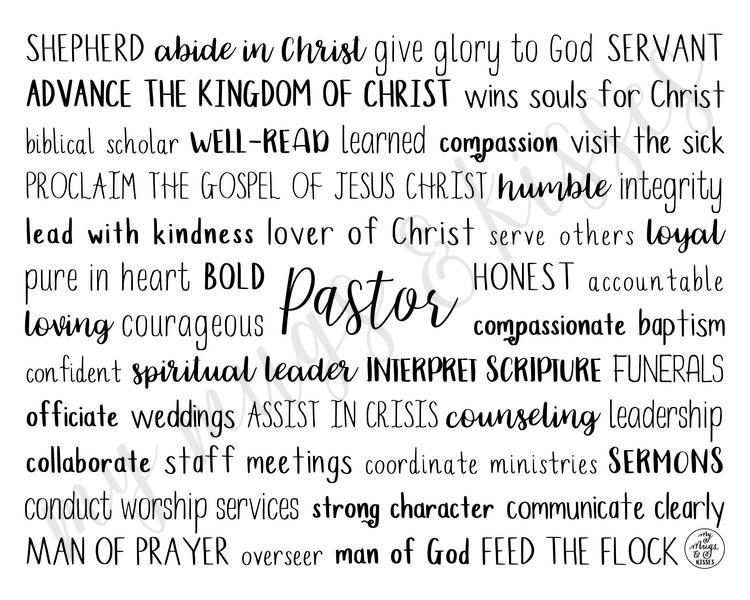 SHEPHERD abide in Christ give glory to God SERVANT
ADVANCE THE KINGDOM OF CHRIST wins souls for Christ
biblical scholar WELL-READ learned compassion visit the sick
PROCLAIM THE GOSPEL OF JESUS CHRIST humble integrity
lead with kindness lover of Christ serve others loyal
pure in heart BOLD Pastor HONEST accountable
loving courageous compassionate baptism
confident spiritual leader INTERPRET SCRIPTURE FUNERALS
officiate weddings ASSIST IN CRISIS counseling leadership
collaborate staff meetings coordinate ministries SERMONS
conduct worship services strong character communicate clearly
MAN OF PRAYER overseer man of God FEED THE FLOCK
my Mugs & KISSES
my mugs & kisses